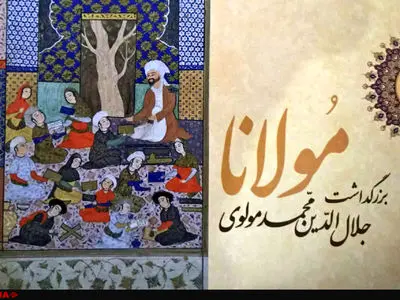 مُولانا
بزرگداشت
جلال الدّین محمّد مولوی